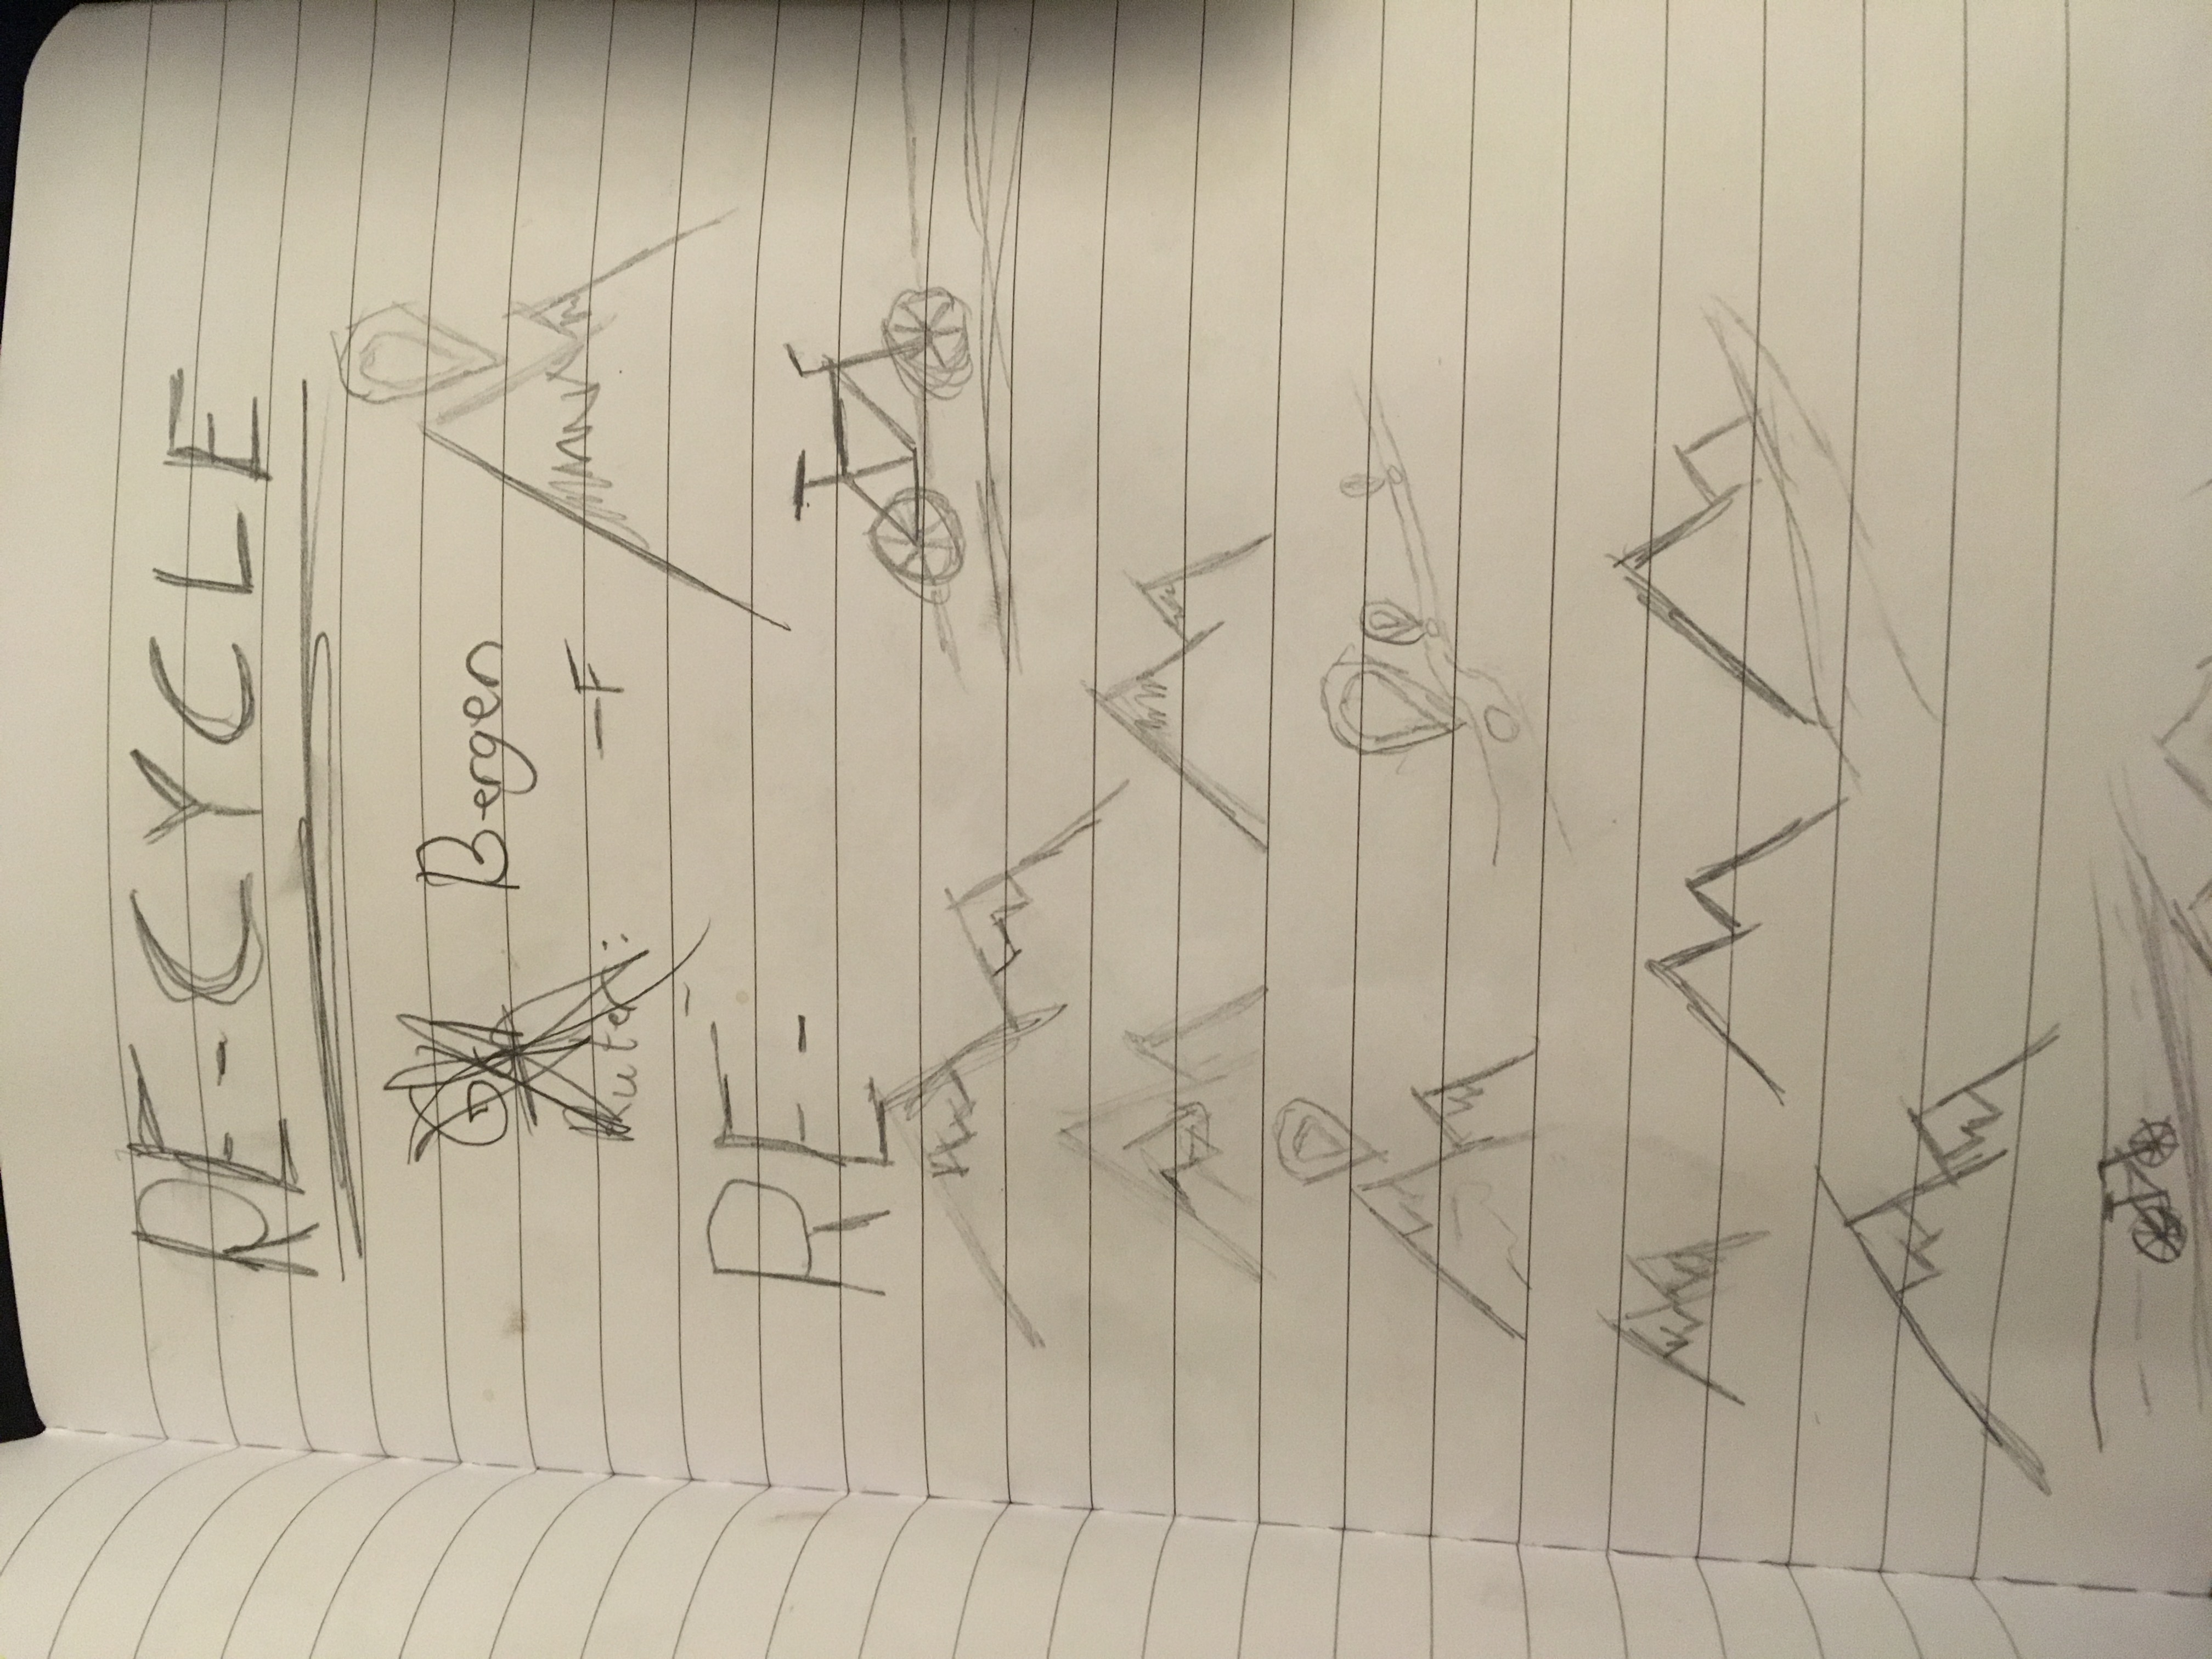 RE-CYCLE
Bergen
Ruter: -F
RE-